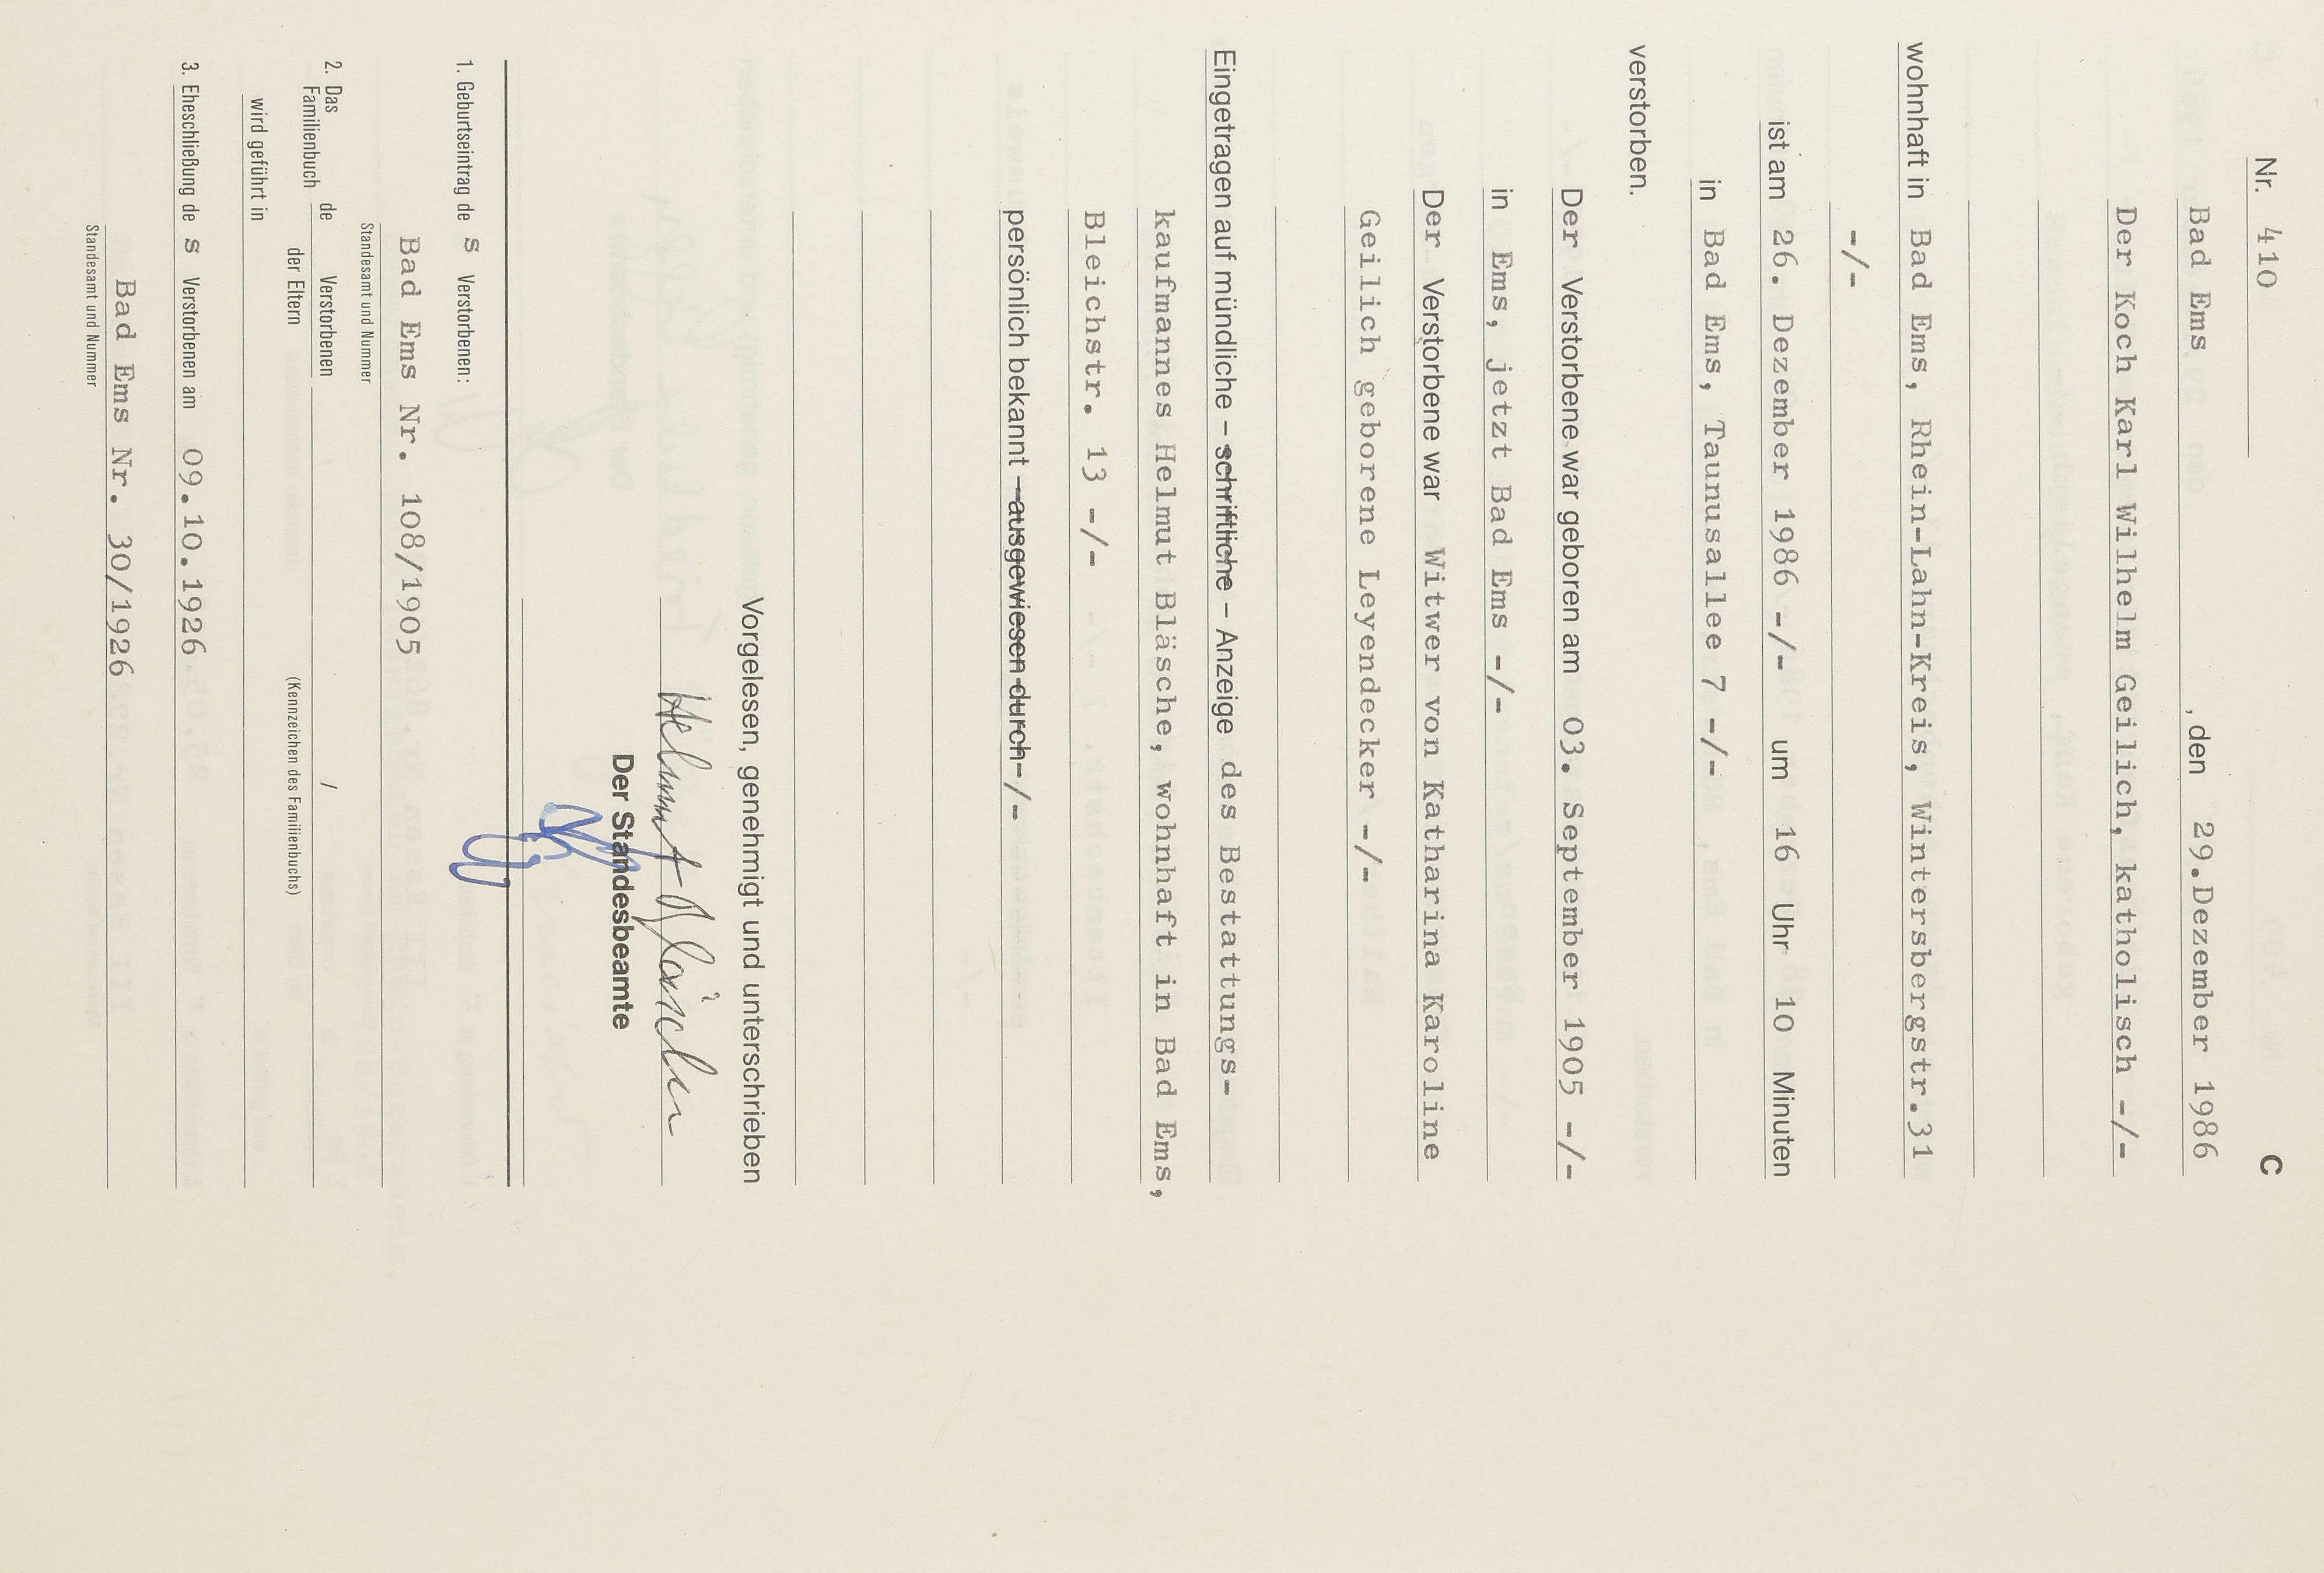 C
Nr. 410
Bad Ems, den 29.Dezember 1986
Der Koch Karl Wilhelm Geilich, katholisch -/-
wohnhaft in Bad Ems, Rhein-Lahn-Kreis, Wintersbergstr.31
-/-
ist am 26. Dezember 1986 -/- um 16 Uhr 10 Minuten
in Bad Ems, Taunusallee 7 -/-
verstorben.
Der Verstorbene war geboren am 03. September 1905 -/-
in Ems, jetzt Bad Ems -/-
Der Verstorbene war Witwer von Katharina Karoline
Geilich geborene Leyendecker -/-
Eingetragen auf mündliche – schriftliche – Anzeige des Bestattungs-
kaufmannes Helmut Bläsche, wohnhaft in Bad Ems,
Bleichstr. 13 -/-
persönlich bekannt – ausgewiesen durch -/-
Vorgelesen, genehmigt und unterschrieben
Helmut Bläsche
Der Standesbeamte
1. Geburtseintrag de s Verstorbenen:
Bad Ems Nr. 108/1905
Standesamt und Nummer
2. Das Familienbuch de Verstorbenen /
der Eltern (Kennzeichen des Familienbuchs)
wird geführt in
3. Eheschließung de s Verstorbenen am 09.10.1926
Bad Ems Nr. 30/1926
Standesamt und Nummer